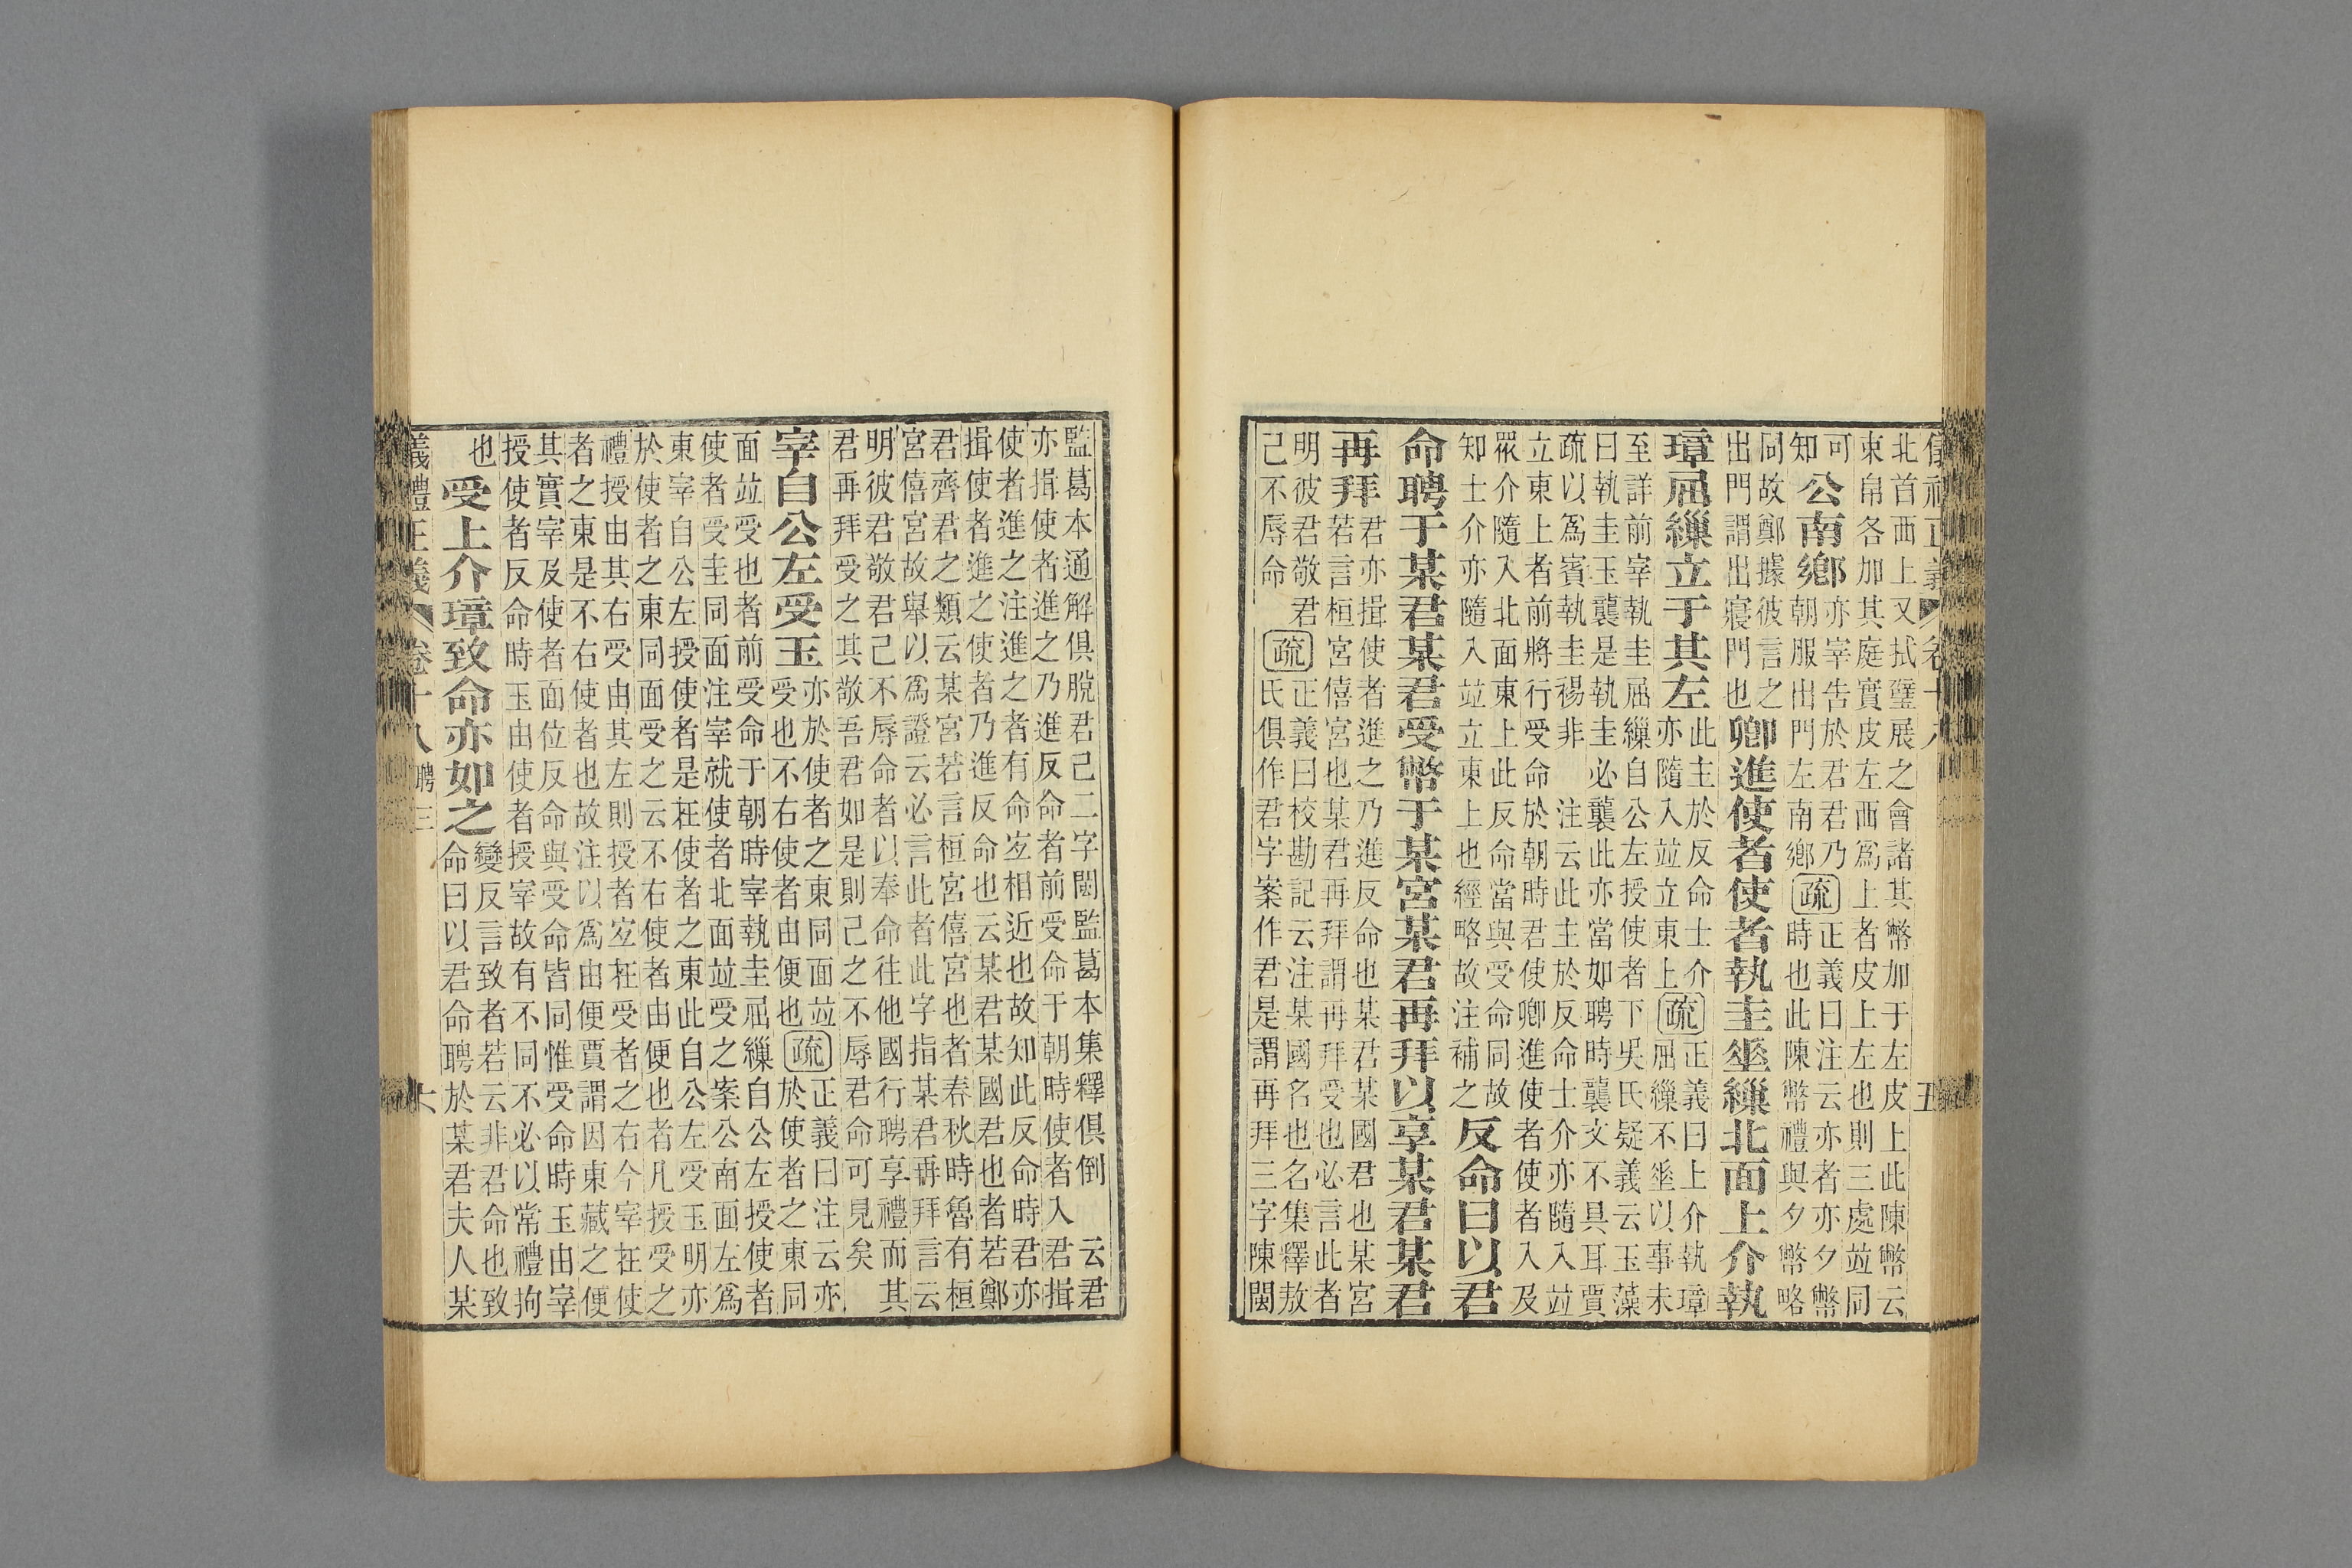 儀禮正義 卷十八 五
北首西上又拭璧展之會諸其幣加于左皮上此陳幣云
束帛各加其庭實皮左西爲上者皮上左也則三處竝同
可
知
公南鄉
亦宰告於君君乃
朝服出門左南鄉
疏
正義曰注云亦者亦夕幣
時也此陳幣禮與夕幣略
同故鄭據彼言之
出門謂出寢門也
卿進使者使者執圭垂繅北面上介執
璋屈繅立于其左
此主於反命士介
亦隨入竝立東上
疏
正義曰上介執璋
屈繅不垂以事未
至詳前宰執圭屈繅自公左授使者下吳氏疑義云玉藻
曰執圭玉襲是執圭必襲此亦當如聘時襲文不具耳賈
疏以爲賓執圭裼非　注云此主於反命士介亦隨入竝
立東上者前將行受命於朝時君使卿進使者使者入及
眾介隨入北面東上此反命當與受命同故
知士介亦隨入竝立東上也經略故注補之
反命曰以君
命聘于某君某君受幣于某宮某君再拜以享某君某君
再拜
君亦揖使者進之乃進反命也某君某國君也某宮
若言桓宮僖宮也某君再拜謂再拜受也必言此者
明彼君敬君
己不辱命
疏
正義曰校勘記云注某國名也名集釋敖
氏俱作君字案作君是謂再拜三字陳閩
監葛本通解俱脫君己二字閩監葛本集釋俱倒　云君
亦揖使者進之乃進反命者前受命于朝時使者入君揖
使者進之注進之者有命宜相近也故知此反命時君亦
揖使者進之使者乃進反命也云某君某國君也者若鄭
君齊君之類云某宮若言桓宮僖宮也者春秋時魯有桓
宮僖宮故舉以爲證云必言此者此字指某君再拜言云
明彼君敬君己不辱命者以奉命往他國行聘享禮而其
君再拜受之其敬吾君如是則己之不辱君命可見矣
宰自公左受玉
亦於使者之東同面竝
受也不右使者由便也
疏
正義曰注云亦
於使者之東同
面竝受也者前受命于朝時宰執圭屈繅自公左授使者
使者受圭同面注宰就使者北面竝受之案公南面左爲
東宰自公左授使者是在使者之東此自公左受玉明亦
於使者之東同面受之云不右使者由便也者凡授受之
禮授由其右受由其左則授者宜在受者之右今宰在使
者之東是不右使者也故注以爲由便賈謂因東藏之便
其實宰及使者面位反命與受命皆同惟受命時玉由宰
授使者反命時玉由使者授宰故有不同不必以常禮拘
也
受上介璋致命亦如之
變反言致者若云非君命也致
命曰以君命聘於某君夫人某
義禮正義 卷十八 聘三 六